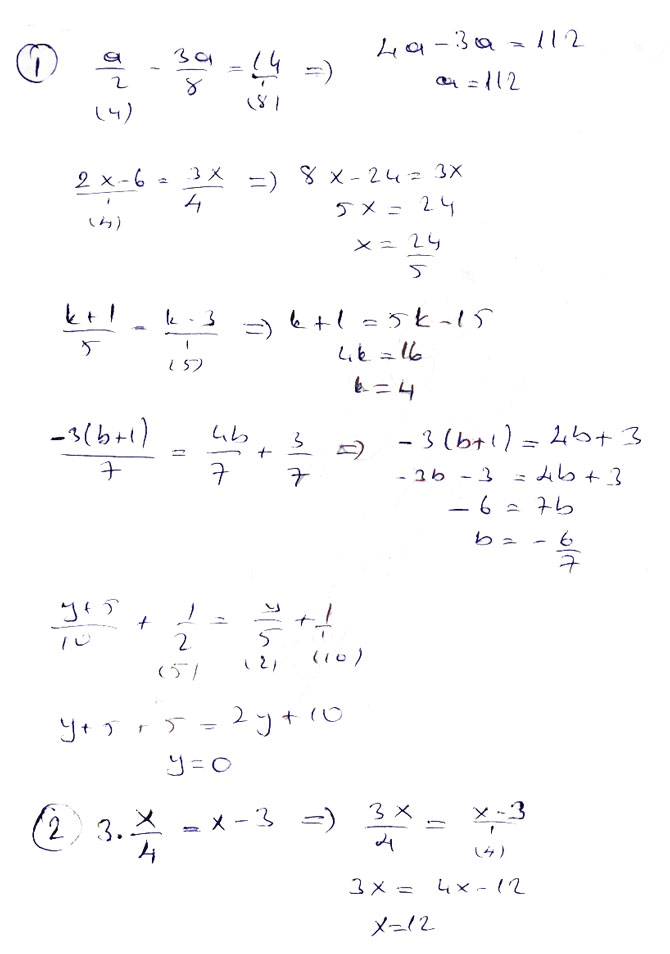 ① a/2 - 3a/8 = 14/1 => 4a - 3a = 112
(4) (8) a = 112
2x-6/1 = 3x/4 => 8x - 24 = 3x
(4) 5x = 24
x = 24/5
k+1/5 = k-3/1 => k+1 = 5k-15
(5) 4k = 16
k = 4
-3(b+1)/7 = 4b/7 + 3/7 => -3(b+1) = 4b+3
-3b - 3 = 4b+3
-6 = 7b
b = -6/7
y+5/10 + 1/2 = y/5 + 1/1
(5) (2) (10)
y+5+5 = 2y+10
y=0
② 3.x/4 = x-3 => 3x/4 = x-3/1
(4)
3x = 4x-12
x=12